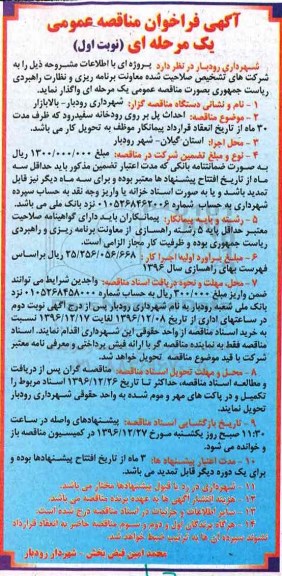 آگهی فراخوان مناقصه عمومی
یک مرحله ای (نوبت اول)
شهرداری رودبار در نظر دارد پروژه ای با اطلاعات مشروحه ذیل را به
شرکت های تشخیص صلاحیت شده معاونت برنامه ریزی و نظارت راهبردی
ریاست جمهوری بصورت مناقصه عمومی یک مرحله ای واگذار نماید.
۱ - نام و نشانی دستگاه مناقصه گزار: شهرداری رودبار- بالابازار
۲ - موضوع مناقصه: احداث پل بر روی رودخانه سفیدرود که ظرف مدت
۳۰ ماه از تاریخ انعقاد قرارداد پیمانکار موظف به تحویل کار می باشد.
۳ - محل اجرا: استان گیلان- شهر رودبار
۴ - نوع و مبلغ تضمین شرکت در مناقصه: مبلغ ۱۳۰۰/۰۰۰/۰۰۰ ریال
به صورت ضمانتنامه بانکی که مدت اعتبار تضمین مذکور باید حداقل سه
ماه از تاریخ افتتاح پیشنهاد ها معتبر بوده و برای سه ماه دیگر نیز قابل
تمدید باشد و یا به صورت اسناد خزانه یا واریز وجه نقد به حساب سپرده
شهرداری به حساب شماره ۰۱۰۵۲۶۸۴۶۲۰۰۶ نزد بانک ملی می باشد.
۵ - رشته و پایه پیمانکار: پیمانکاران باید دارای گواهینامه صلاحیت
معتبر حداقل پایه ۵ رشته راهسازی از معاونت برنامه ریزی و راهبردی
ریاست جمهوری بوده و ظرفیت کار مجاز الزامی است.
۶ - مبلغ برآورد اولیه اجرا کار: ۲۵/۲۵۶/۰۵۶/۶۶۸ ریال براساس
فهرست بهای راهسازی سال ۱۳۹۶
۷ - محل، مهلت و نحوه دریافت اسناد مناقصه: واجدین شرایط می توانند
ضمن واریز مبلغ ۳۰۰/۰۰۰ ریال به حساب شماره ۰۱۰۵۲۶۸۴۵۸۰۰۰ نزد
بانک ملی شعبه رودبار به نام شهرداری رودبار پس از درج آگهی نوبت دوم
در ساعتهای اداری از تاریخ ۱۳۹۶/۱۲/۰۸ لغایت ۱۳۹۶/۱۲/۱۷ نسبت
به خرید اسناد مناقصه از واحد حقوقی این شهرداری اقدام نمایند. اسناد
مناقصه فقط به نماینده مناقصه گر با ارائه فیش پرداختی و معرفی نامه معتبر
شرکت با قید موضوع مناقصه تحویل خواهد شد.
۸ - محل و مهلت تحویل اسناد مناقصه: مناقصه گران پس از دریافت
و مطالعه اسناد مناقصه، حداکثر تا تاریخ ۱۳۹۶/۱۲/۲۶ اسناد مربوط را
تکمیل و در پاکت های مهر و موم شده به واحد حقوقی شهرداری رودبار
تحویل نمایند.
۹ - تاریخ بازگشایی اسناد مناقصه: پیشنهادهای واصله در ساعت
۱۱:۳۰ صبح روز یکشنبه مورخ ۱۳۹۶/۱۲/۲۷ در کمیسیون مناقصه باز
و خوانده می شود.
۱۰ - مدت اعتبار پیشنهاد ها: ۳ ماه از تاریخ افتتاح پیشنهادها بوده و
برای یک دوره دیگر قابل تمدید می باشد.
۱۱ - شهرداری در رد یا قبول پیشنهادها مختار می باشد.
۱۲ - هزینه انتشار آگهی ها به عهده برنده مناقصه می باشد.
۱۳ - سایر اطلاعات و جزئیات در اسناد مناقصه درج شده است.
۱۴ - هرگاه برندگان اول و دوم و سوم مناقصه حاضر به انعقاد قرارداد
نشوند سپرده آن ها به ترتیب ضبط خواهد شد.
محمد امین فیض بخش - شهردار رودبار